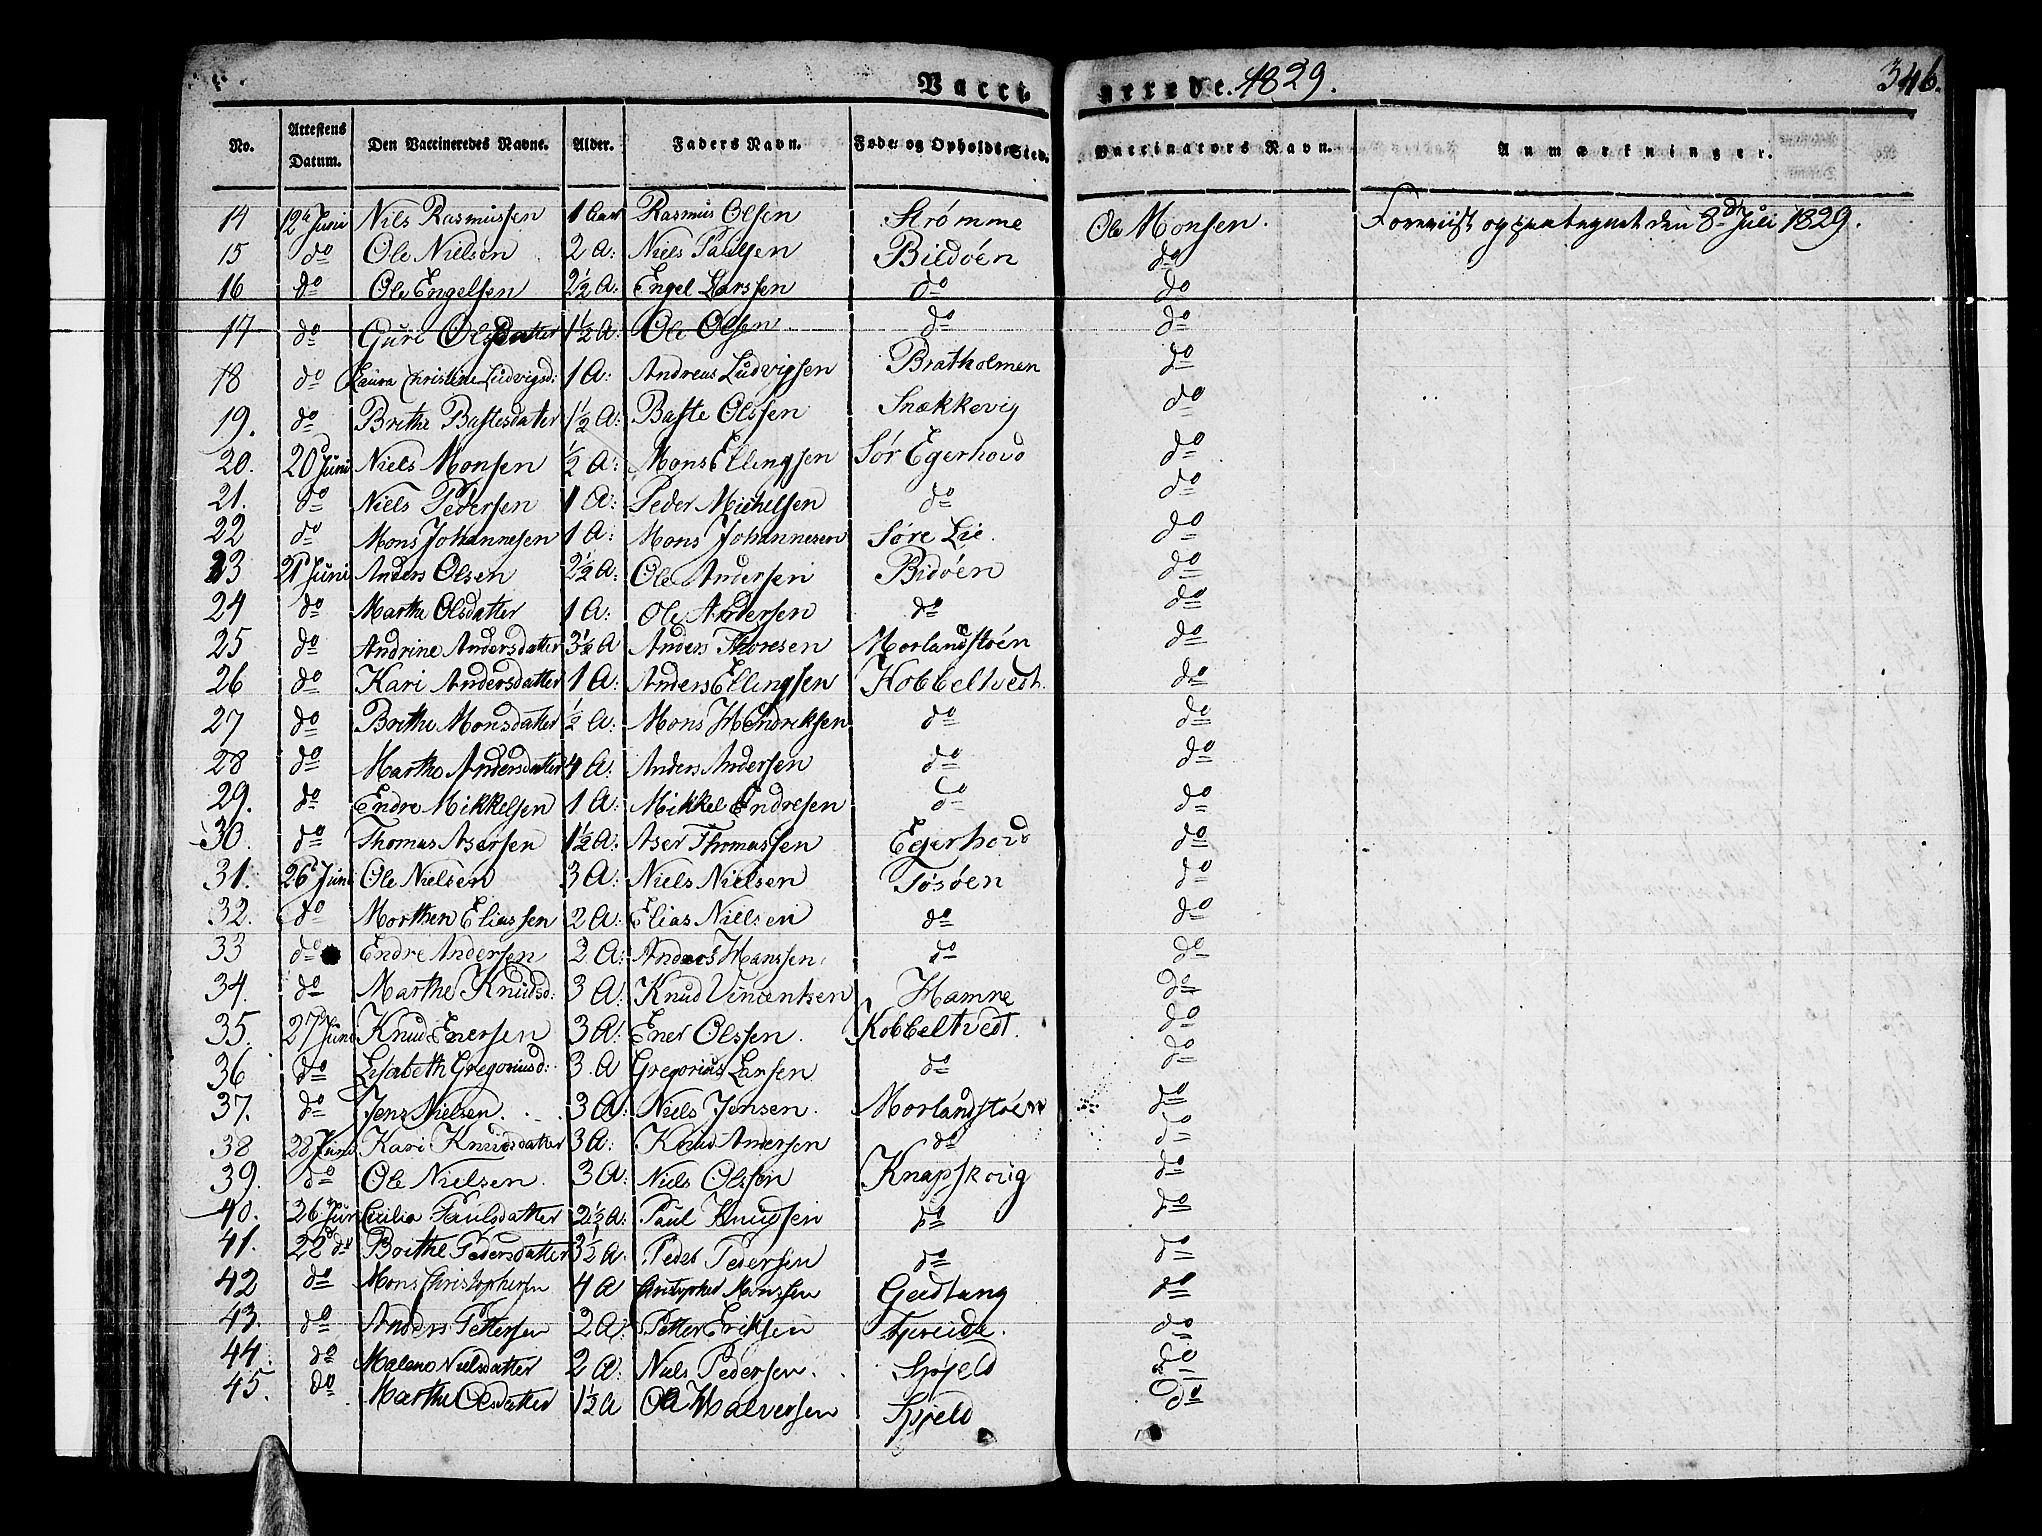 Vacci nerede. 1829. 346.
No. Attestens Datum. Den Vaccineredes Navne. Alder. Faders Navn. Føde og Opholds Sted. Vaccinators Navn. Anmærkninger.
14 12te Juni Nils Rasmussen 1 Aar Rasmus Olsen Strømme Ole Monsen. Foreviist og den 8de Juli 1829.
15 do Ole Nielsen 2 A: Niels Paulsen Bildöen do
16 do Ole Engelsen 2½ A: Engel Larssen do do
17 do Guri Olsdatter 1½ A: Ole Olsen do do
18 do Laura Christine Ludvigsd: 1 A: Andreas Ludvigsen Bratholmen do
19. do Brithe Bastesdatter 1½ A: Baste Olssen Snækkevig do
20. 20d Juni Niels Monsen ½ A: Mons Ellingsen Sør Egerhovd do
21. do Niels Pedersen 1 A: Peder Mickelsen do do
22 do Mons Johannesen 1 A: Mons Johannesen Søre Lie. do
23 21 Juni Anders Olsen 2½ A: Ole Andersen Bidöen do
24 do Marthe Olsdatter 1 A: Ole Andersen do do
25 do Andrine Andersdatter 3½ A Anders Thoresen Morlandstöen do
26 do Kari Andersdatter 1 A: Anders Ellingsen Kobbeltvedt. do
27 do Brithe Monsdatter ½ A: Mons Hendriksen do do
28 do Marthe Andersdatter 4 A: Anders Andersen do do
29. do Endre Mikkelsen 1 A: Mikkel Endresen do do
30. do Thomas Asersen 1½ A: Aser Thomassen Egerhovd do
31. 26d Juni Ole Nielsen 3 A: Niels Nielsen Tösöen do
32. do Morthen Eliassen 2 A: Elias Nielsen do do
33 do Endre Andersen 2 A: Anders Hanssen do do
34. do Marthe Knudsd: 3 A: Knud Vincentsen Hamre do
35. 27d Juni Knud Enersen 3 A: Ener Olssen. Kobbeltvedt. do
36 do Lisabeth Gregoriusd: 3 A Gregorius Larsen do do
37. do Jens Nielsen. 3 A: Niels Jensen. Morlandstöen do
38 28 Juni Kari Knudsdatter 3 A: Knud Andersen do do
39. do Ole Nielsen. 3 A: Niels Olsen Knapskoug do
40. 26 Juni Cicilia Paulsdatter 2½ A: Paul Knudsen do do
41. 28d do Brithe Pedersdatter 3½ A: Peder Pedersen do do
42 do Mons Christophersen 4 A Christopher Monssen do
43. do Anders Pettersen 2 A: Petter Eriksen Fjereide. do
44. do Malene Nielsdatter 2 A: Niels Pedersen. Spjeld do
45. do Marthe Olsdatter 1½ A Ole Halversen Spjeld do